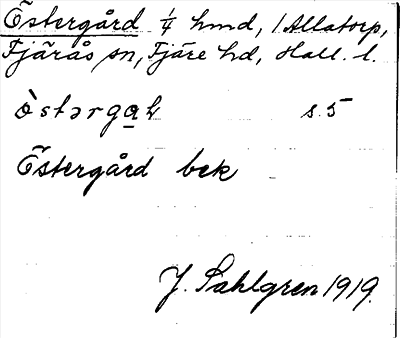 Östergård 1/4 hmd, i Allatorp,
Fjärås sn, Fjäre hd, Hall. l.
s. 5
Östergård bek
J. Sahlgren 1919.